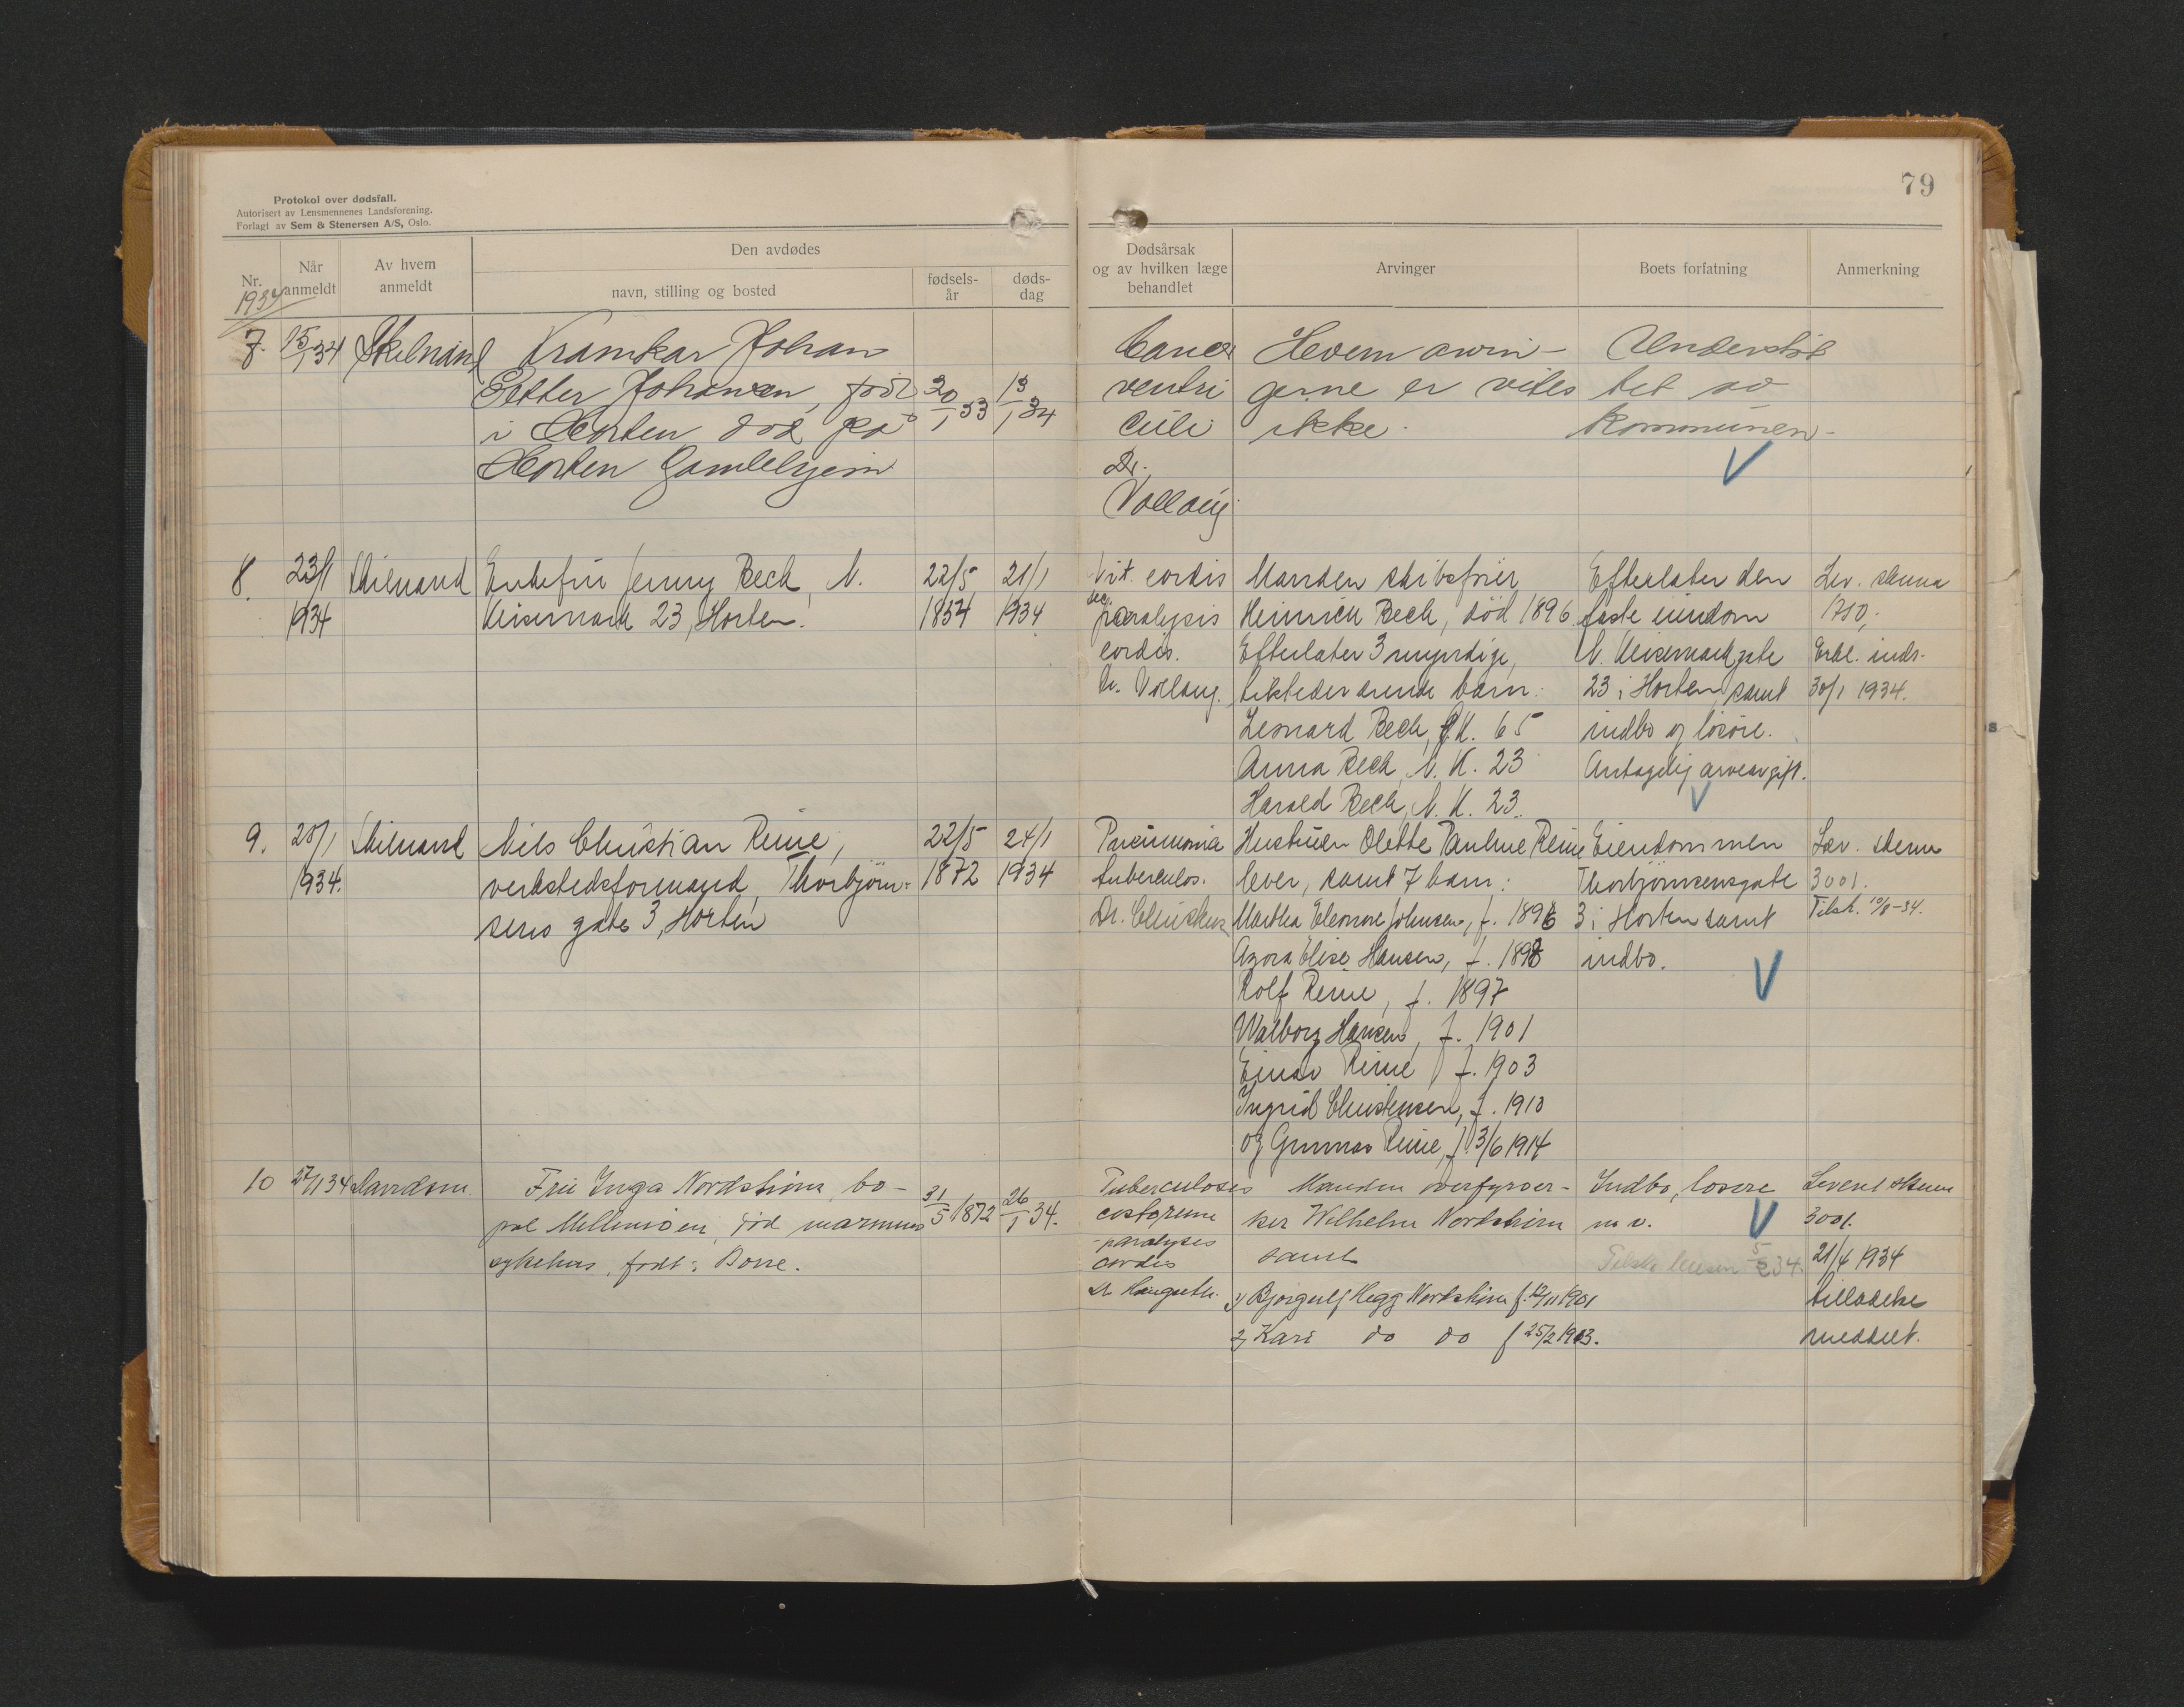 79
Protokol over dødsfall.
Autorisert av Lensmennenes Landsforening.
Forlagt av Sem & Stenersen A/S, Oslo.
Nr.
Når anmeldt
Av hvem anmeldt
Den avdødes
navn, stilling og bosted
fødsels-år
døds-dag
Dødsårsak og av hvilken læge behandlet
Arvinger
Boets forfatning
Anmerkning
1934
7. 15/1 34 Johan
Johansen, født 30/1 53 13/1 34
i Horten død på
Horten Gamlehjem
Cancer
ventri
culi
Dr.
Vollaug
Hvem arvin-
gerne er vites
ikke.
Understøt
tet av
kommunen
8. 23/1 1934 Enkefru Jenny Bech, N.
Keisemark 23, Horten.
22/5 1854
21/1 1934
Vit. cordis
paralysis
cordis.
Dr. Vollaug.
Manden
Heinrich Bech, død 1896.
Efterlater 3 myndige,
tilstedeværende barn:
Leonard Bech, K. 65
Anna Bech, N. K. 23
Harald Bech, N. K. 23.
Efterlater den
faste eiendom
N. Keisemarkgate
23 i Horten, samt
indbo og løsøre.
Antagelig arveavgift.
Lev. skema
1710,
Erkl. inds.
30/1 1934.
9. 1934. Nils Christian Reine,
verkstedsformand, Thorbjørn-
sens gate 3, Horten
22/5 1872
24/1 1934
Pneumonia
tuberculos.
Dr.
Hustruen Olette Pauline Reine
lever, samt 7 barn:
Martha Eleonore Johnsen, f. 1896
Agora Elise Hansen, f. 1898
Rolf Reine, f. 1897
Walborg Hansen, f. 1901
Einar Reine, f. 1903
Ingrid Christensen, f. 1910
og Gunnar Reine, f. 3/6 1914
Eiendommen
Thorbjørnsensgate
3 i Horten samt
indbo.
Lev. skema
3001.
Tilst. 10/8-34.
10 27/1 34
Fru Inga Nordstrøm, bo-
pæl Mellomøen, død marinens
sykehus, født i Borre.
31/5 1872
26/1 34.
Tuberculosis
paralysis
cordis
Dr.
Manden overfyrbø-
ker Wilhelm Nordstrøm
samt
1) Bjørgulf Hegg Nordstrøm f. 12/11 1901
2) Kari do do f 25/2 1903.
Indbo, løsøre
m v.
34.
Levert skema
3001.
21/4 1934
tilladelse
meddelt.